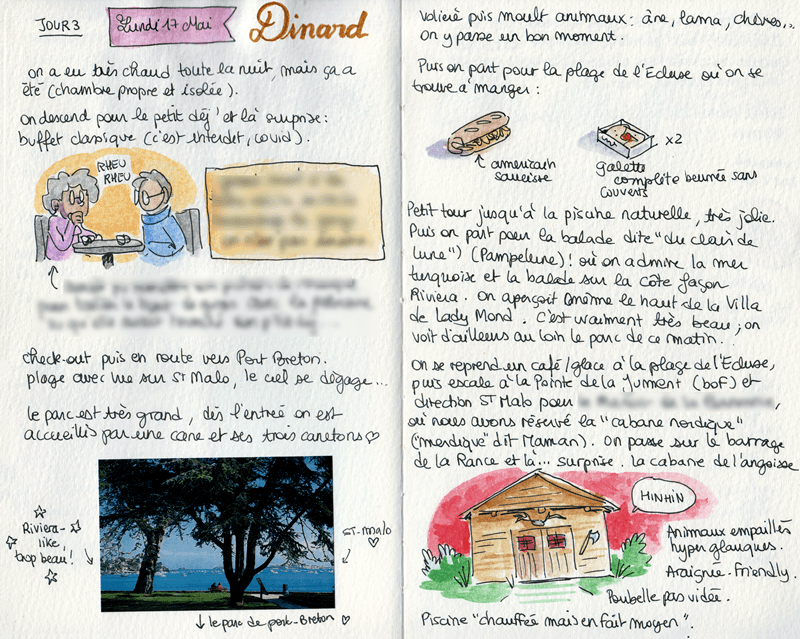 JOUR 3
Lundi 17 Mai
Dinard
on a eu très chaud toute la nuit, mais ça a
été (chambre propre et isolée).
on descend pour le petit déj' et là surprise:
buffet classique (c'est interdit, covid).
RHEU
RHEU
check-out puis en route vers Port Breton.
plage avec vue sur St Malo, le ciel se dégage...
le parc est très grand, dès l'entrée on est
accueillis par une cane et ses trois canetons ♡
Riviera-
like,
trop beau!
ST-Malo
♡
↓ le parc de port-Breton ♡
volière puis moult animaux: âne, lama, chèvres...
on y passe un bon moment.
Puis on part pour la plage de l'Ecluse où on se
trouve à manger:
américain
saucisse
x2
galette
complète beurrée sans
couverts
Petit tour jusqu'à la piscine naturelle, très jolie.
Puis on part pour la balade dite "du clair de
lune") (Pampelune)! où on admire la mer
turquoise et la balade sur la côte façon
Riviera. on aperçoit même le haut de la Villa
de Lady Mond. C'est vraiment très beau; on
voit d'ailleurs au loin le parc de ce matin.
on se reprend un café/glace à la plage de l'Ecluse,
puis escale à la Pointe de la Jument (bof) et
direction ST Malo pour
où nous avons réservé la "cabane nordique"
("merdique" dit Maman). on passe sur le barrage
de la Rance et là... surprise. la cabane de l'angoisse
HINHIN
Animaux empaillés
hyper glauques.
Araignée-friendly.
Poubelle pas vidée.
Piscine "chauffée mais en fait moyen".